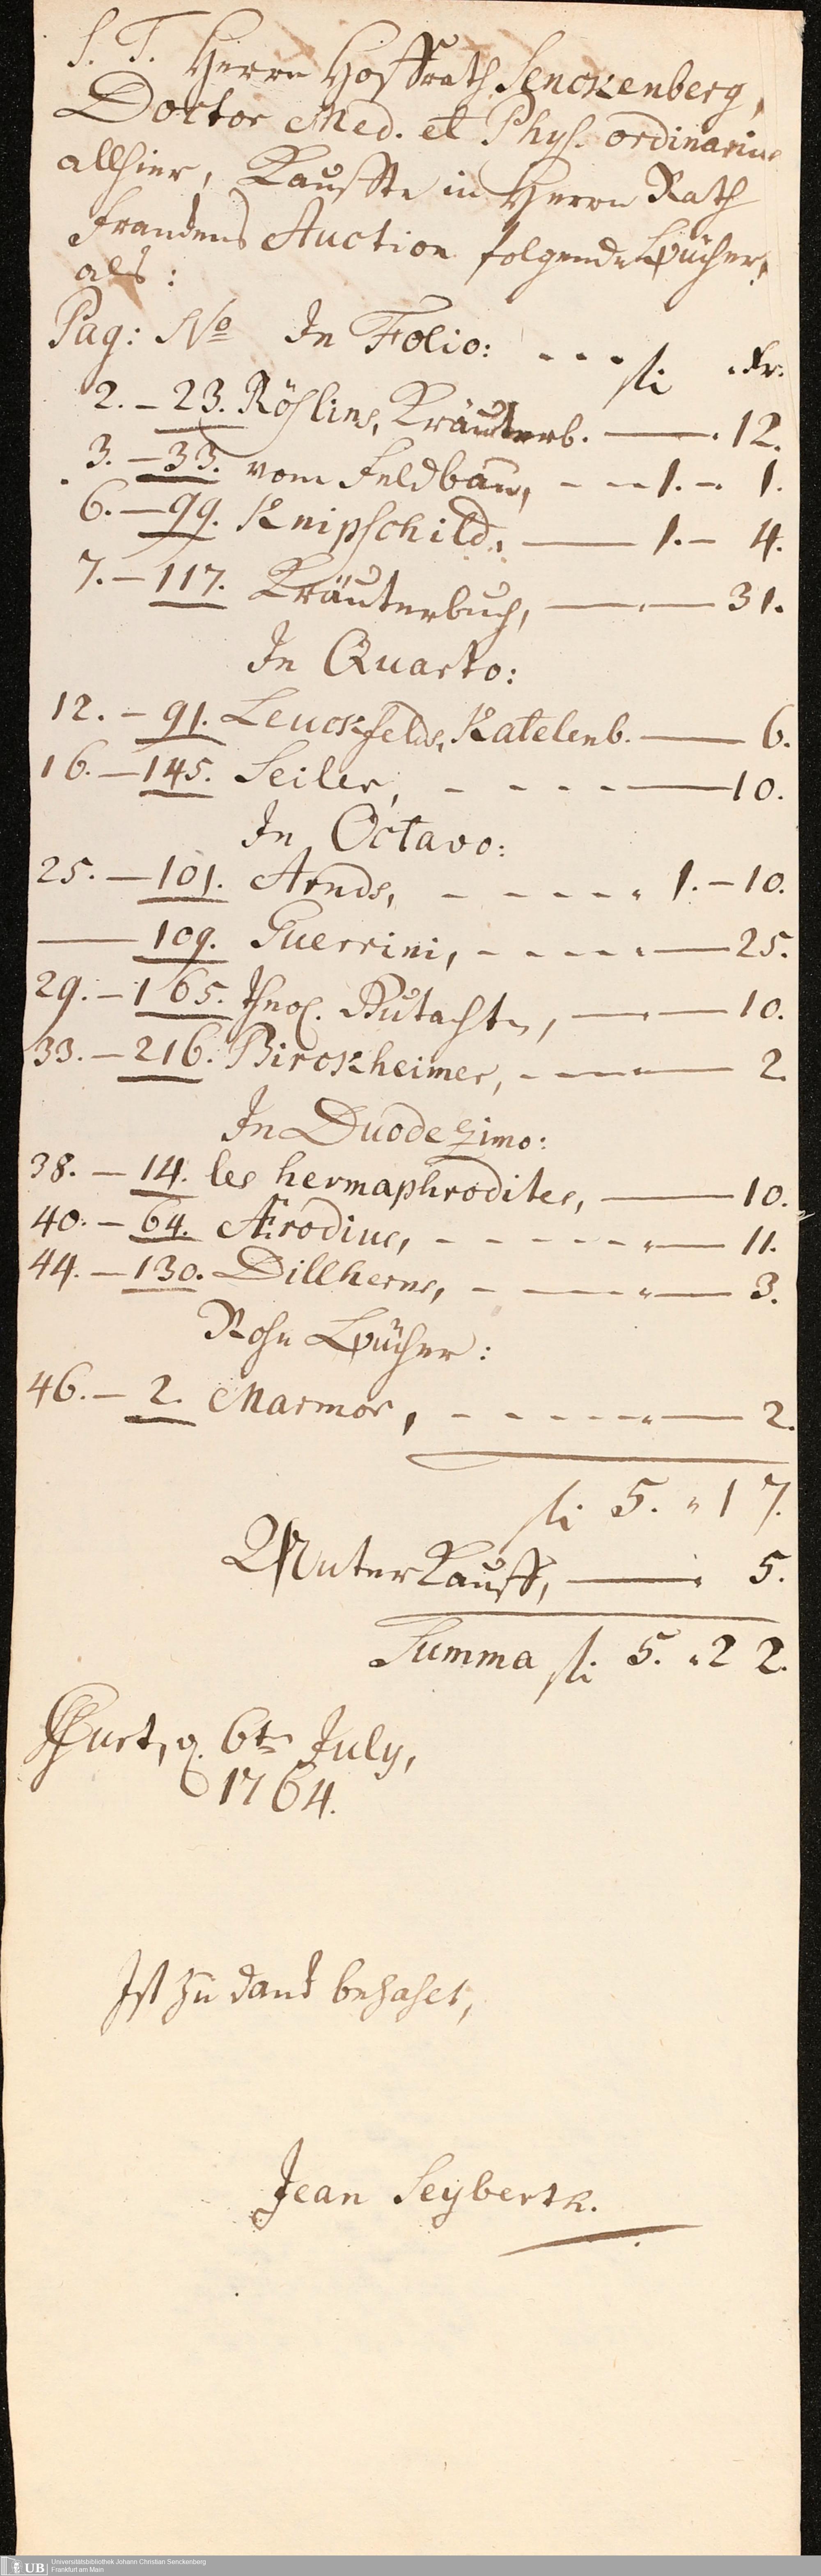 S. T. Herrn Hoffrath Senckenberg,
Doctor Med. et Phys. ordinarius
allhier, Kauffte in Herrn Rath
Franckens Auction folgende Bücher,
als:
Pag: No In Folio: - - - fl. . Xr.
2. - 23. Rößlins, Kräuterb. — . 12.
3. - 33. vom Feldbau, - - - 1. - 1.
6. - 99. Knipschild, — 1. - 4.
7. - 117. Kräuterbuch, — . — 31.
In Quarto:
12. - 91. Leuckfelds, Katelenb. — 6.
16. - 145. Seiler, - - - - — 10.
In Octavo:
25. - 101. Arnds, - - - - - " 1. - 10.
— 109. Guerrini, - - - - - — 25.
29. - 165. Theol. Gutachten, — . — 10.
33. - 216. Birckheimer, - - - — 2.
In Duodezimo:
38. - 14. les hermaphrodites, — 10.
40. - 64. Ærodius, - - - - - - " — 11.
44. - 130. Dillherns, - — " — 3.
Rohe Bücher:
46. - 2. Marmor, - - - - - " — 2.
fl. 5. " 17.
Unterkauff, — " 5.
Summa fl. 5. " 22.
Ffurt, d. 6te July,
1764.
Ist zu danck bezahlt,
Jean Seyberth.
UB Universitätsbibliothek Johann Christian Senckenberg
Frankfurt am Main